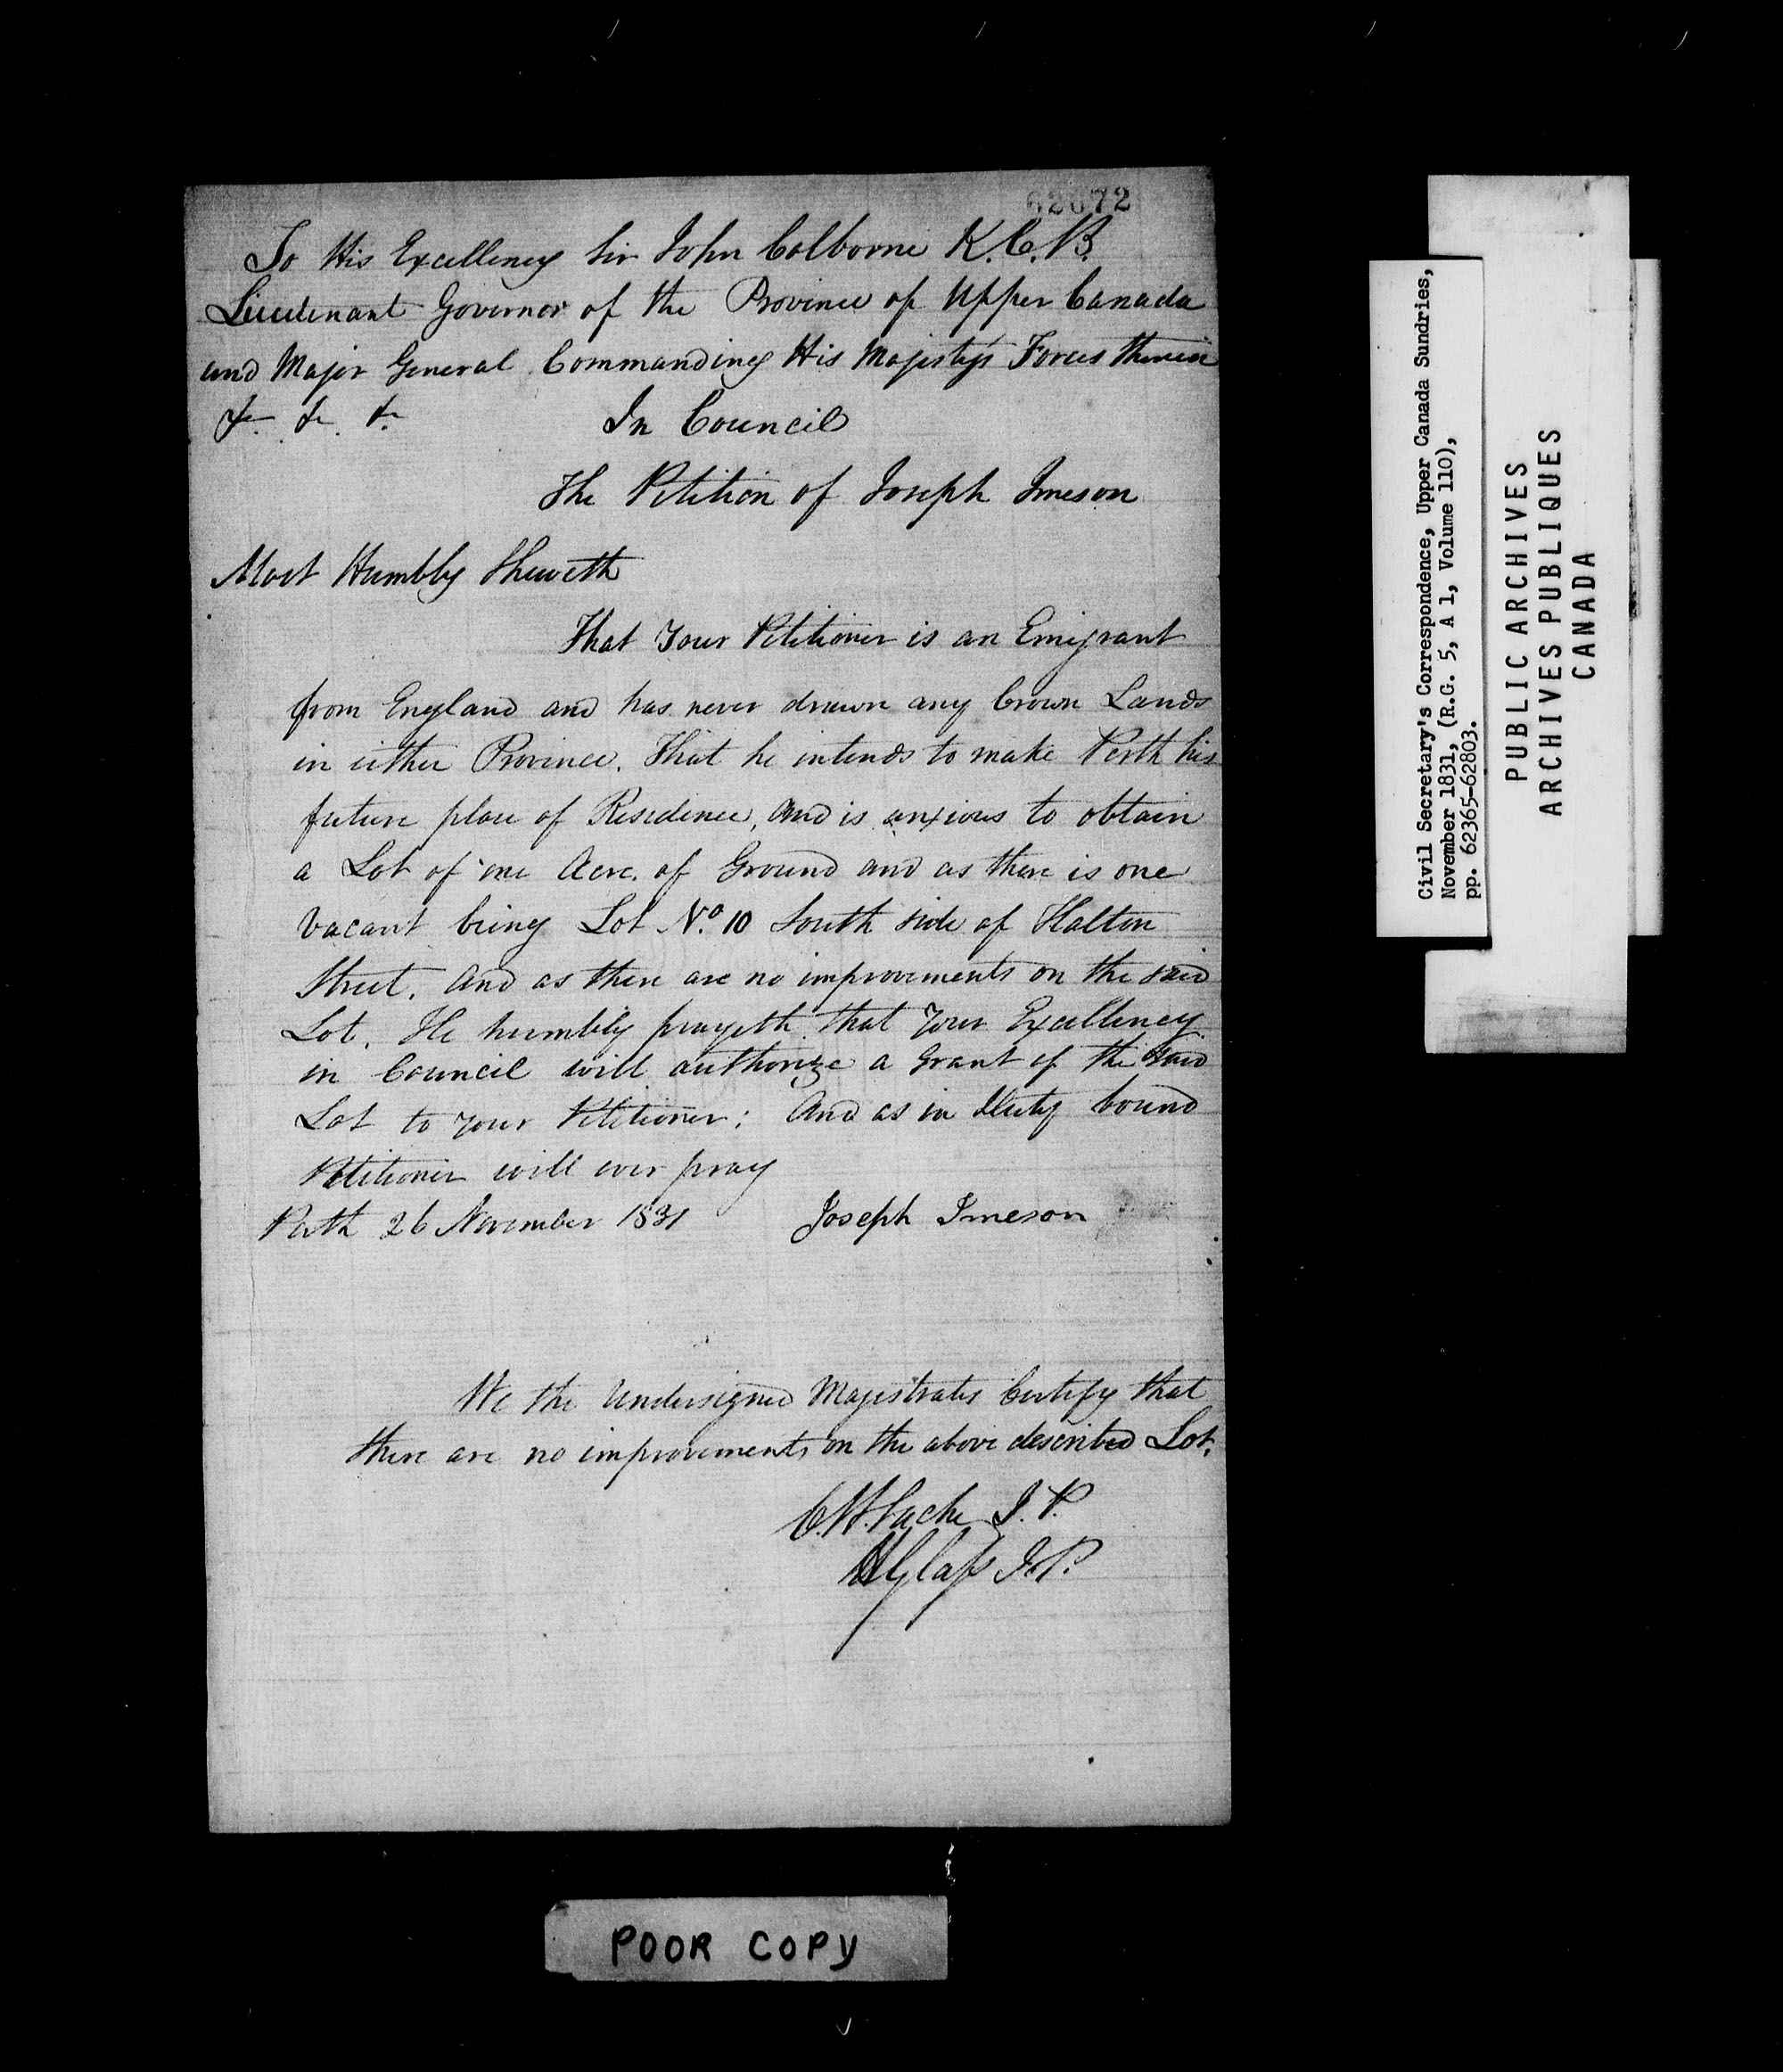 62672
To His Excellency Sir John Colborne K.C.B.
Lieutenant Governor of the Province of Upper Canada
and Major General Commanding His Majesty's Forces therein
&c. &c. &c. In Council
The Petition of Joseph Imeson
Most Humbly Sheweth
That Your Petitioner is an Emigrant
from England and has never drawn any Crown Lands
in either Province. That he intends to make Perth his
future place of Residence, and is anxious to obtain
a Lot of one Acre of Ground and as there is one
vacant being Lot No. 10 South side of Halton
Street. And as there are no improvements on the said
Lot. He humbly prayeth that Your Excellency
in Council will authorize a Grant of the said
Lot to your Petitioner; And as in Duty bound
Petitioner will ever pray
Perth 26 November 1831 Joseph Imeson
We the Undersigned Magistrates Certify that
there are no improvements on the above described Lot.
J.P.
HGlass J.P.
Civil Secretary's Correspondence, Upper Canada Sundries,
November 1831, (R.G. 5, A 1, Volume 110),
pp. 62365-62803.
PUBLIC ARCHIVES
ARCHIVES PUBLIQUES
CANADA
POOR COPY